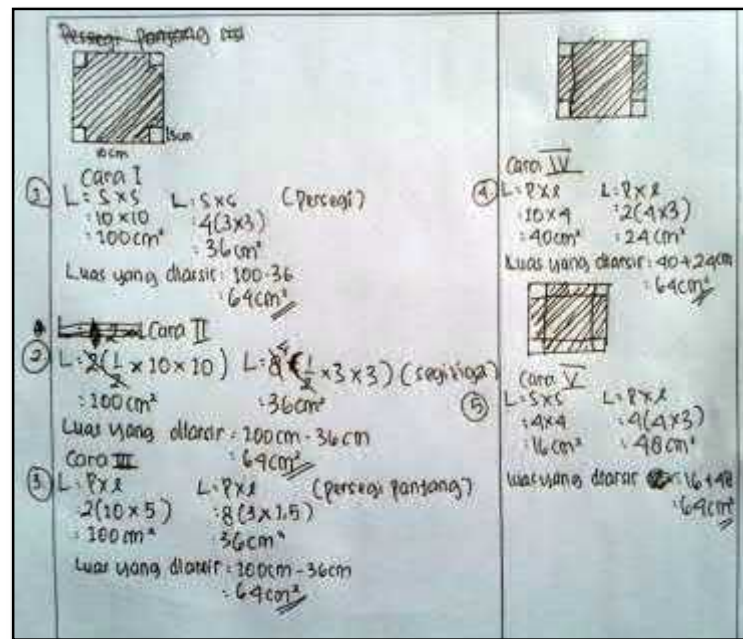 Persegi panjang sisi
3cm
10cm
Cara I
① L = S x S
: 10 x 10
: 100 cm²
L = S x S
: 4(3x3)
: 36 cm²
(Persegi)
Luas yang diarsir : 100-36
: 64cm²
Cara II
② L = 2(1/2 x 10 x 10)
: 100cm²
L = 8(1/2 x 3 x 3) (segitiga)
: 36cm²
Luas yang diarsir = 100cm - 36cm
: 64cm²
Cara III
③ L : P x l
2(10 x 5)
: 100 cm²
L : P x l
: 8(3 x 1,5)
: 36cm²
(persegi panjang)
Luas yang diarsir : 100cm - 36cm
: 64cm²
Cara IV
④ L : P x l
: 10 x 4
: 40cm²
L : P x l
: 2(4x3)
: 24cm²
Luas yang diarsir : 40 + 24cm
: 64cm²
Cara V
⑤ L = S x S
: 4x4
: 16cm²
L : P x l
: 4(4x3)
: 48cm²
Luas yang diarsir : 16+48
: 64cm²